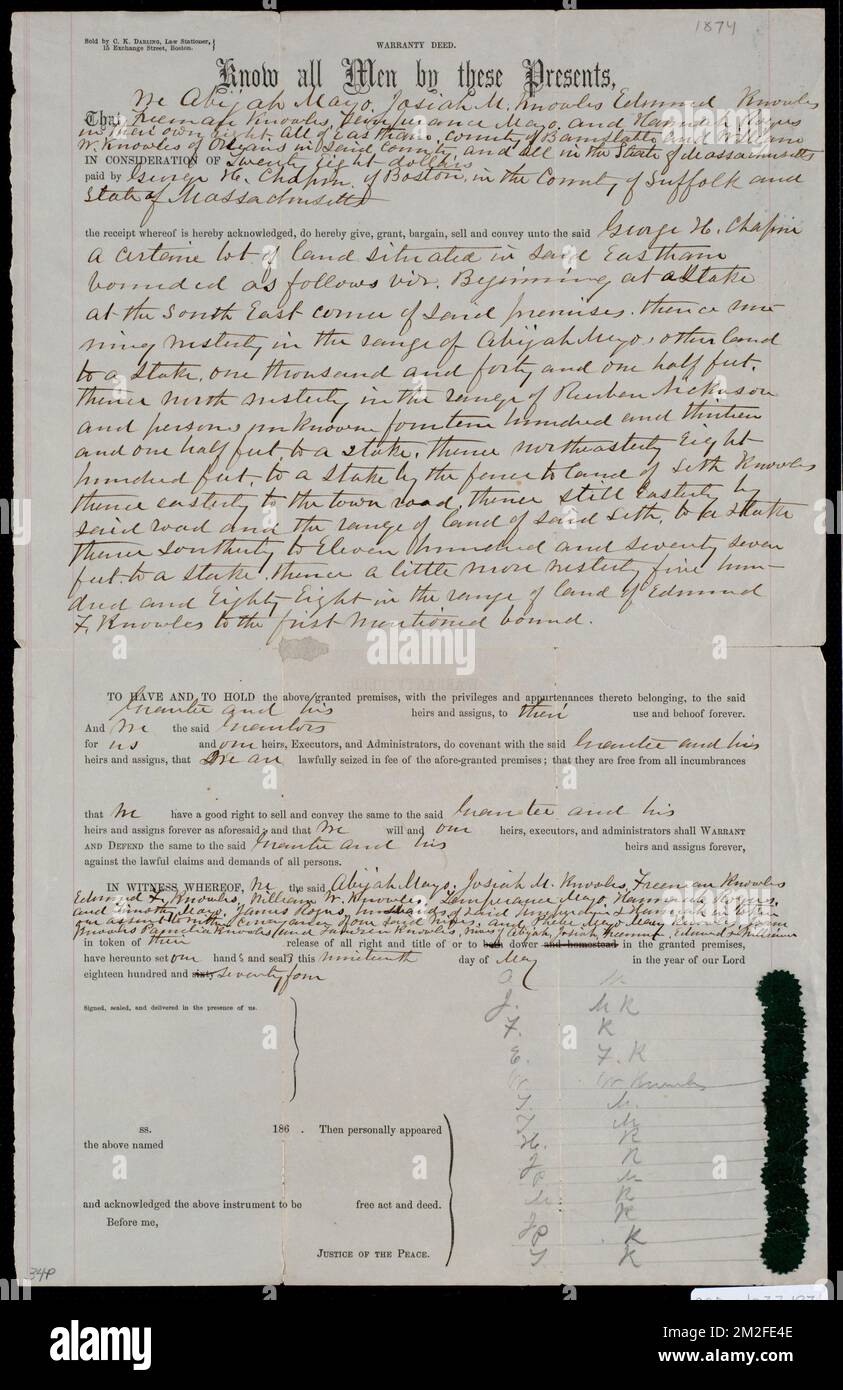 1874
Sold by C. K. Darling, Law Stationer,
15 Exchange Street, Boston.
WARRANTY DEED.
Know all Men by these Presents,
We Abijah Mayo, Josiah M. Knowles Edmund Knowles
That Freeman Knowles, Temperance Mayo, and Hannah Rogers
in their own right. All of Eastham, County of Barnstable and William
W. Knowles of Orleans in said County and all in the State of Massachusetts
IN CONSIDERATION OF Twenty Eight dollars
paid by George H. Chapin of Boston, in the County of Suffolk and
State of Massachusetts
the receipt whereof is hereby acknowledged, do hereby give, grant, bargain, sell and convey unto the said George H. Chapin
a certaine lot of land situated in said Eastham
bounded as follows viz. Beginning at a stake
at the South East corner of said premises, thence run-
ning westerly in the range of Abijah Mayo, other land
to a stake, one thousand and forty and one half feet,
thence north westerly in the range of Reuben Nickerson
and persons unknown fourteen hundred and thirteen
and one half feet, to a stake, thence northeasterly Eight
hundred feet, to a stake by the fence to land of Seth Knowles
thence easterly to the town road, thence still Easterly by
said road and the range of land of said Seth, to a stake
thence southerly to Eleven hundred and seventy seven
feet to a stake, thence a little more westerly five hun-
dred and Eighty Eight in the range of land of Edmund
F. Knowles to the first mentioned bound.
TO HAVE AND TO HOLD the above granted premises, with the privileges and appurtenances thereto belonging, to the said
Grantee and his heirs and assigns, to their use and behoof forever.
And We the said Grantors
for us and our heirs, Executors, and Administrators, do covenant with the said Grantee and his
heirs and assigns, that We are lawfully seized in fee of the afore-granted premises; that they are free from all incumbrances
that We have a good right to sell and convey the same to the said Grantee and his
heirs and assigns forever as aforesaid; and that We will and our heirs, executors, and administrators shall WARRANT
AND DEFEND the same to the said Grantee and his heirs and assigns forever,
against the lawful claims and demands of all persons.
IN WITNESS WHEREOF, We the said Abijah Mayo, Josiah M. Knowles, Freeman Knowles
Edmund F. Knowles, William W. Knowles, Temperance Mayo, Hannah Rogers,
and Timothy Mayo, James Rogers, husbands of said Temperance & Hannah in token
our assent to the conveyance of our said wives, and Phebe Mayo, Mary Knowles,
Knowles Pamelia Knowles and Knowles, wives of Abijah, Josiah, Freeman, Edmund & William
in token of their release of all right and title of or to both dower and homestead in the granted premises,
have hereunto set our hands and seals this nineteenth day of May in the year of our Lord
eighteen hundred and sixty seventy four
A. M
J. M K
F. K
E. F. K
W W Knowles
Signed, sealed, and delivered in the presence of us.
T. M.
T. M
H. R
J R
P M
M. K
K
J P K
T K
ss. 186 . Then personally appeared
the above named
and acknowledged the above instrument to be free act and deed.
Before me,
JUSTICE OF THE PEACE.
34P
alamy
Image ID: 2M2FE4E
www.alamy.com